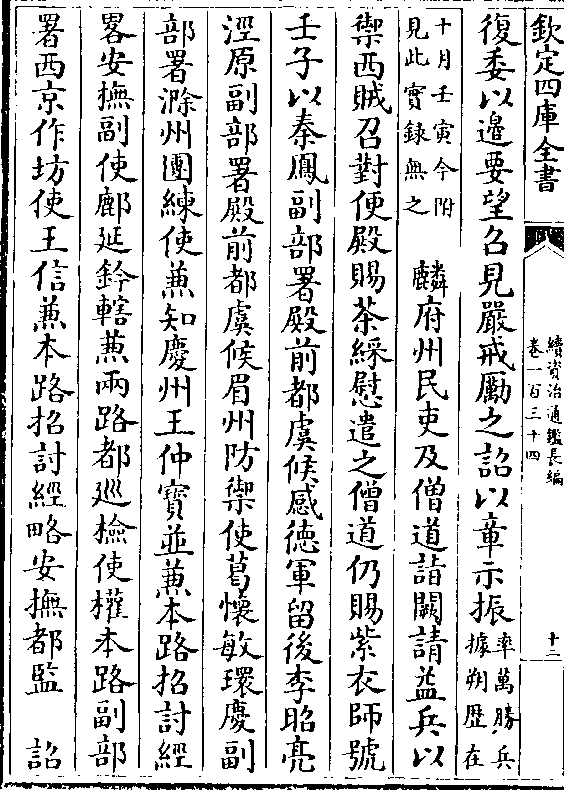 欽定四庫全書
續資治通鑑長編
卷一百三十四
十二
復委以邉要望召見嚴戒勵之詔以章示振率萬勝兵
據朔歴在
十月壬寅今附
見此實錄無之
麟府州民吏及僧道詣闕請益兵以
禦西賊召對便殿賜茶綵慰遣之僧道仍賜紫衣師號
壬子以秦鳳副部署殿前都虞候感徳軍留後李昭亮
涇原副部署殿前都虞候眉州防禦使葛懐敏環慶副
部署滁州團練使兼知慶州王仲寶並兼本路招討經
畧安撫副使鄜延鈐轄兼兩路都廵檢使權本路副部
署西京作坊使王信兼本路招討經略安撫都監　詔